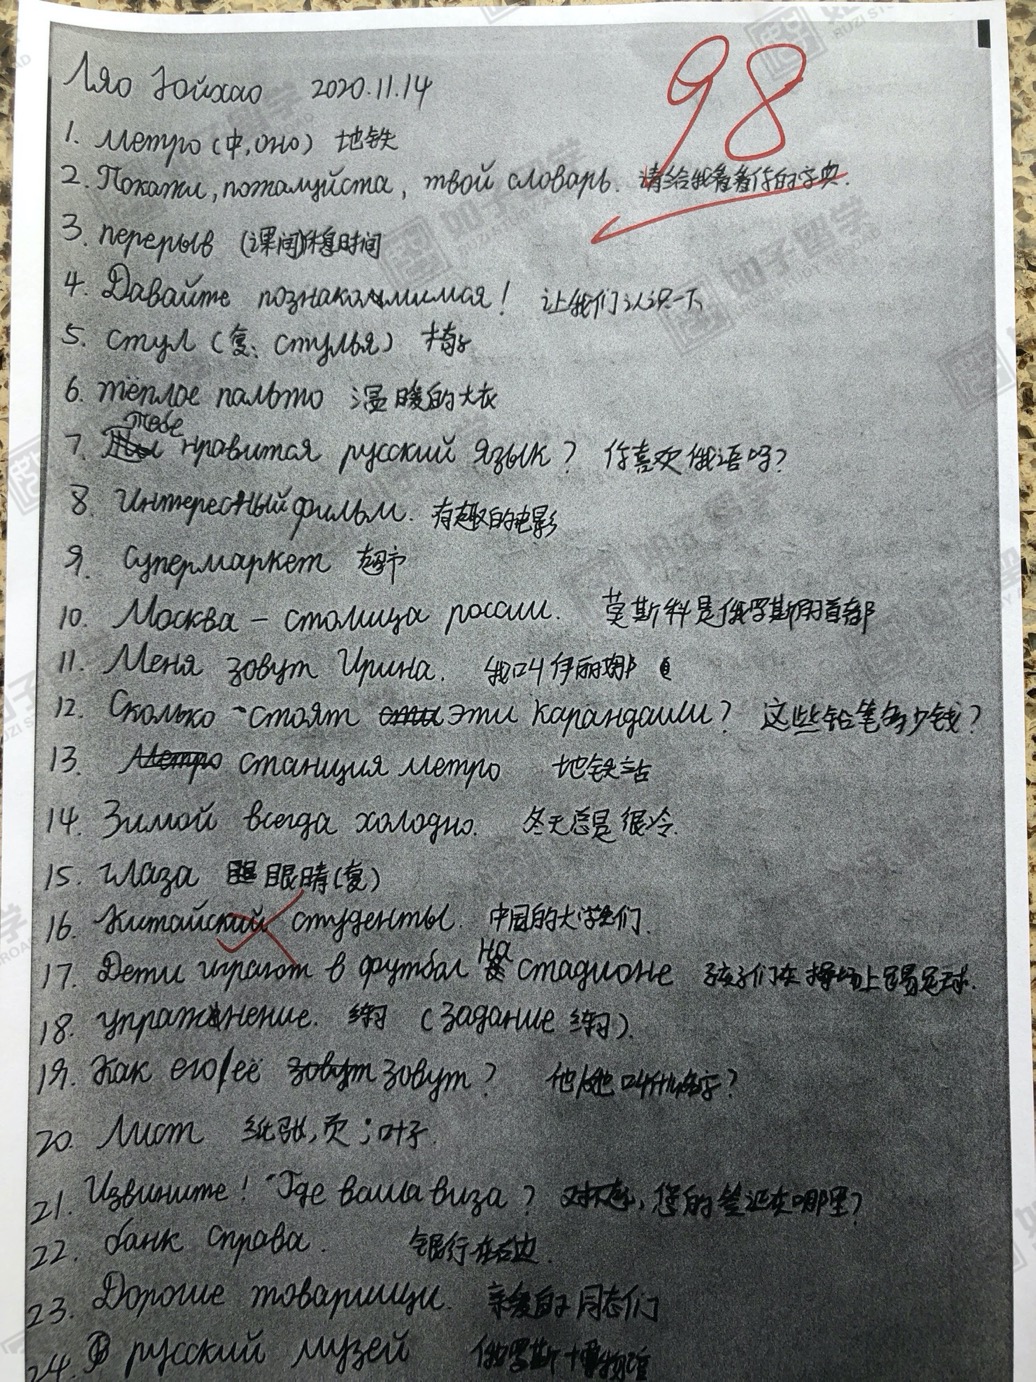 Ляо Юйхао 2020.11.14
98
1. Метро (中, оно) 地铁
2. Покажи, пожалуйста, твой словарь. 请给我看看你的字典.
3. перерыв (课间)休息时间
4. Давайте познакомимся! 让我们认识一下
5. стул (复: стулья) 椅子
6. тёплое пальто 温暖的大衣
7. Тебе нравится русский язык? 你喜欢俄语吗?
8. Интересный фильм. 有趣的电影
9. Супермаркет 超市
10. Москва - столица россии. 莫斯科是俄罗斯的首都
11. Меня зовут Ирина. 我叫伊丽娜
12. Сколько стоят эти карандаши? 这些铅笔多少钱?
13. станция метро 地铁站
14. Зимой всегда холодно. 冬天总是很冷.
15. глаза 眼睛(复)
16. Китайский студенты. 中国的大学生们.
17. Дети играют в футбол на стадионе 孩子们在操场上踢足球.
18. упражнение. 练习 (задание 练习).
19. Как его/её зовут? 他/她叫什么名字?
20. Лист 纸张,页;叶子.
21. Извините! Где ваша виза? 对不起,您的签证在哪里?
22. банк справа. 银行在右边.
23. Дорогие товарищи. 亲爱的同志们
24. русский музей 俄罗斯博物馆
如子留学
RUZI STUDY ABROAD